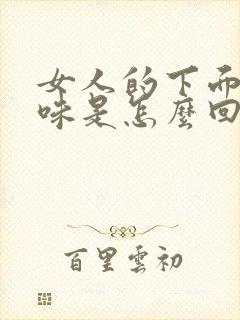 女人的下面
味是怎麼回
百里雲初